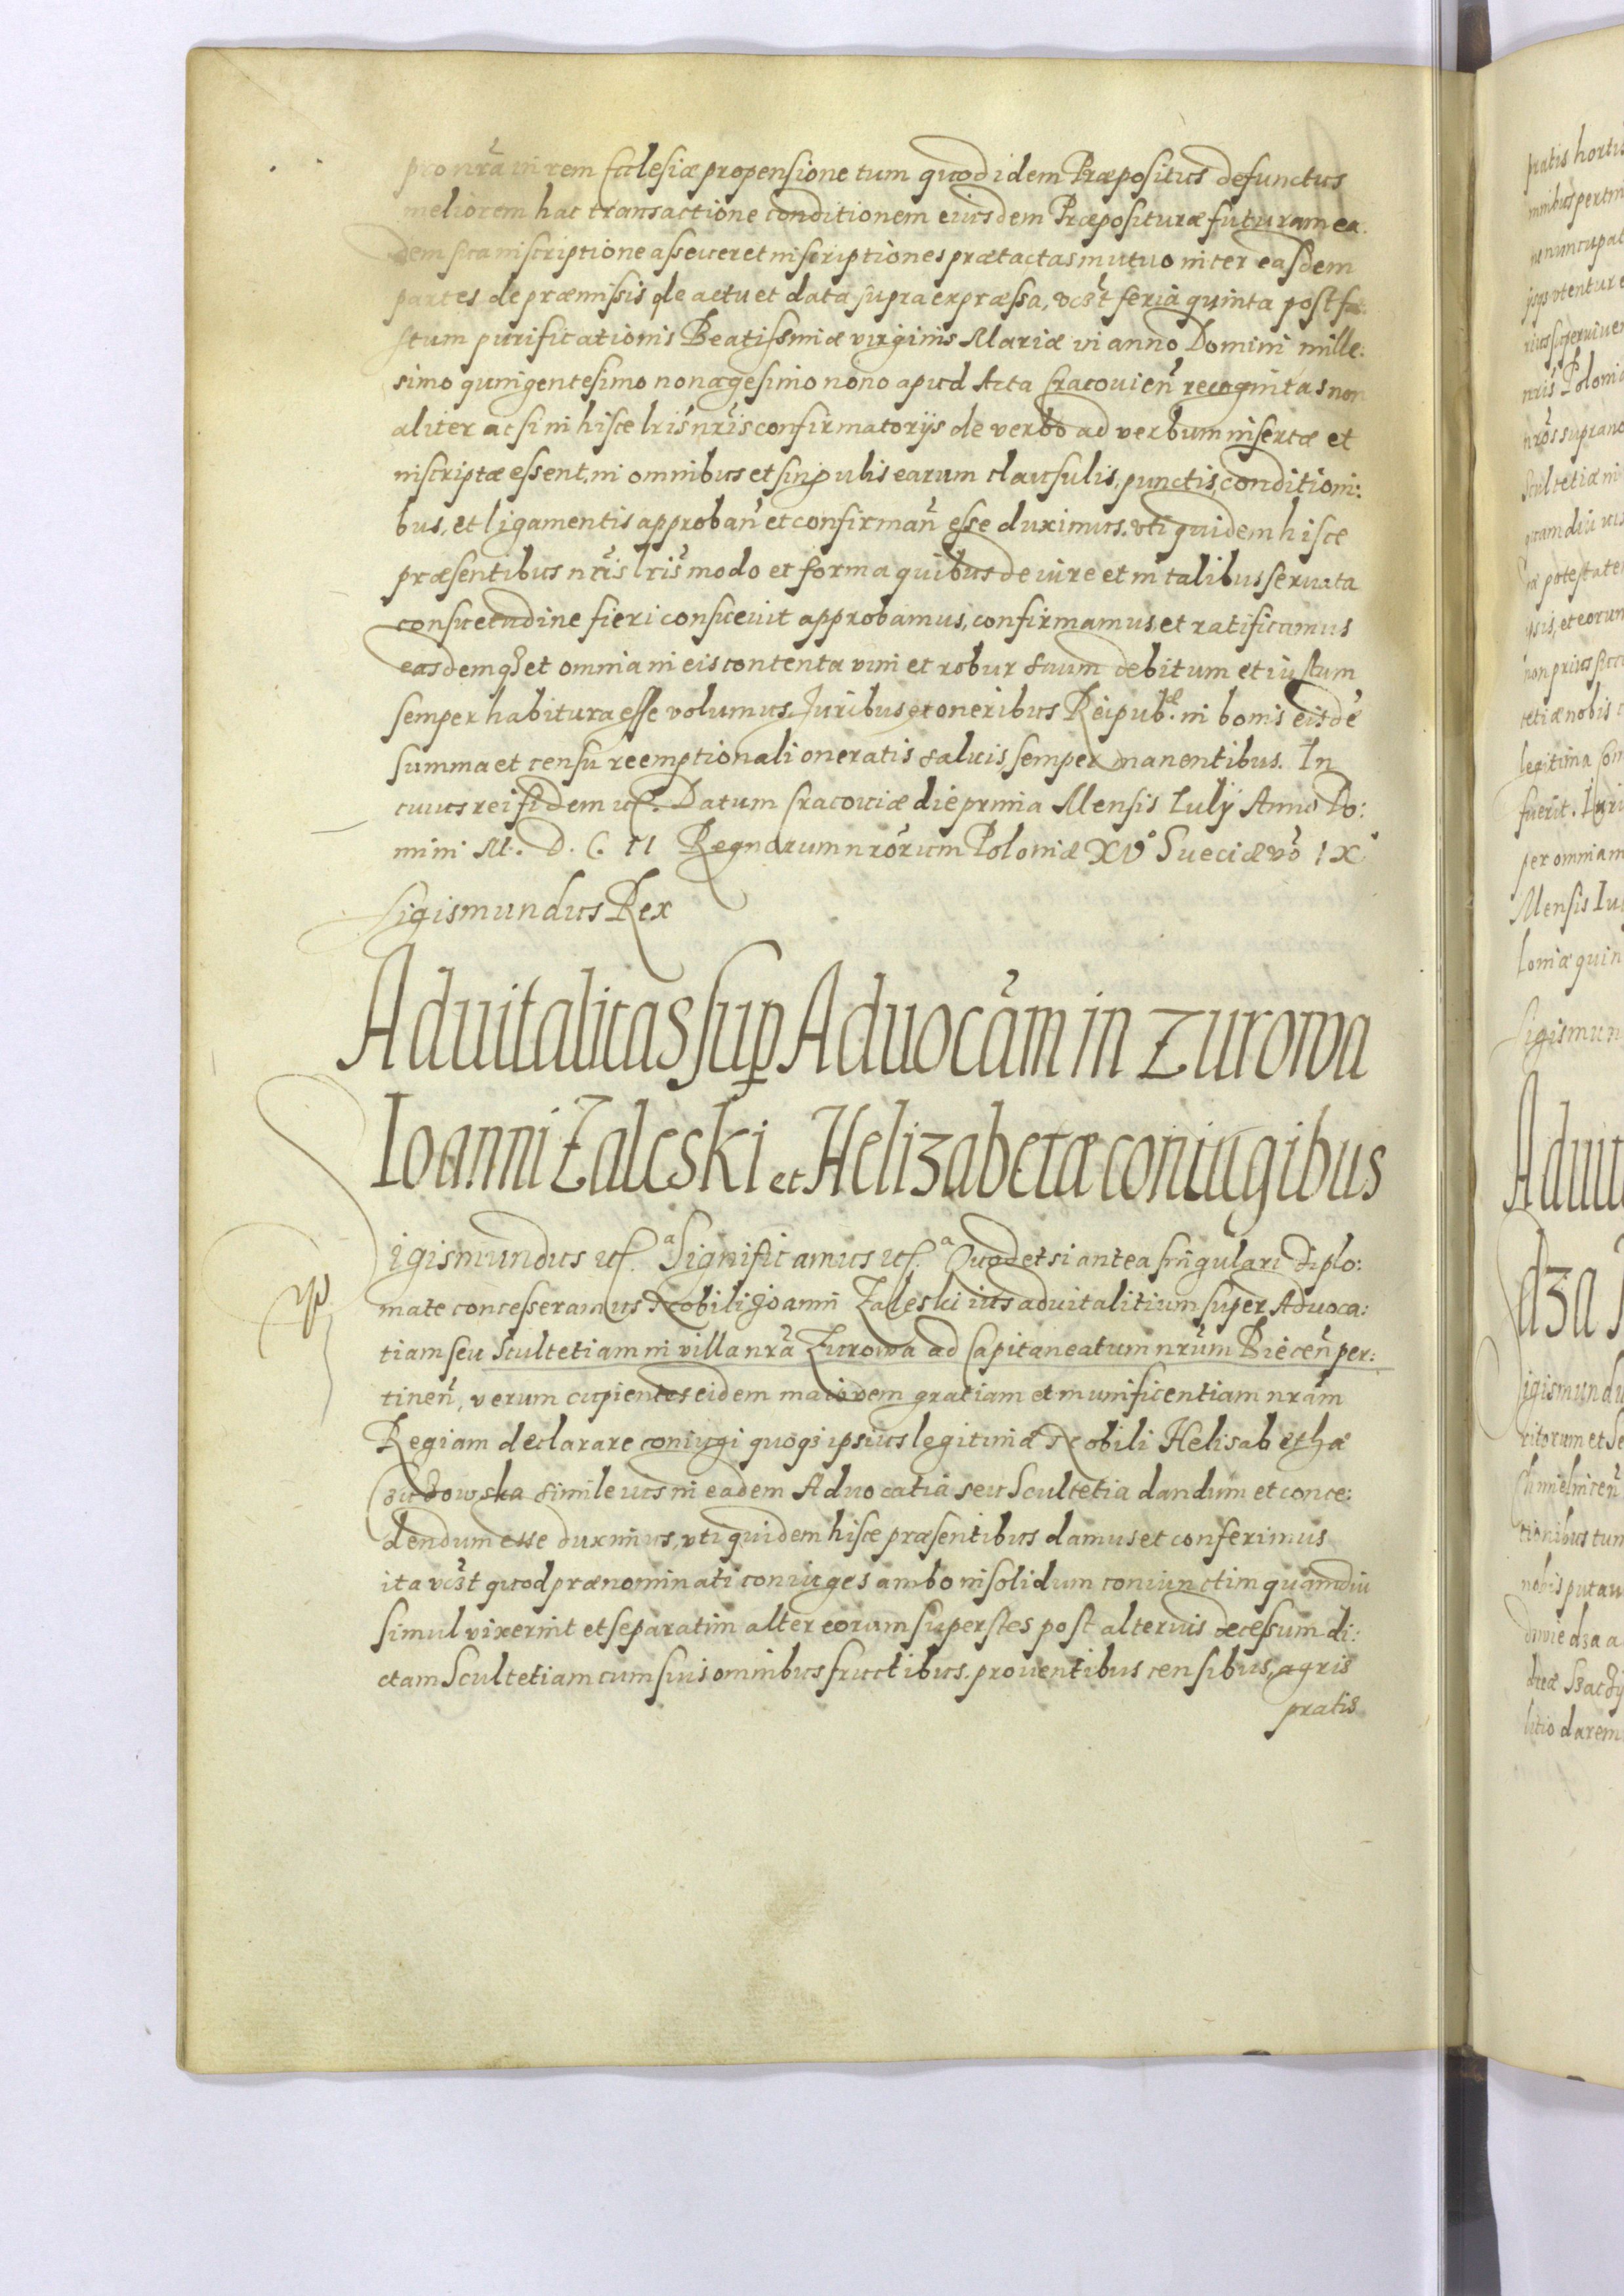 pro nrã in rem Ecclesiæ propensione tum quod idem Præpositus defunctus
meliorem hac transactione conditionem eiusdem Præposituræ futuram ea:
dem sua inscriptione asseueret inscriptiones prætactas mutuo inter easdem
partes de præmissis de actu et data supra expræssa, vczt feria quinta post fe:
stum purificationis Beatissimæ virginis Mariæ in anno Domini mille:
simo quingentesimo nonagesimo nono apud Acta Cracouien recognitas non
aliter ac si in hisce lris nris confirmatorijs de verbo ad verbum insertæ et
inscriptæ essent, in omnibus et singulis earum clausulis, punctis, conditioni:
bus, et ligamentis approban et confirman esse duximus. vti quidem hisce
præsentibus nris lris modo et forma quibus de iure et in talibus seruata
consuetudine fieri consueuit approbamus, confirmamus et ratificamus
easdemq3 et omnia in eis contenta vim et robur suum debitum et iustum
semper habitura esse volumus Juribus et oneribus Reipub.æ in bonis eisdē
summa et censu reemptionali oneratis saluis semper manentibus. In
cuius rei fidem etc. Datum Cracouiæ die prima Mensis Iulij Anno Do:
mini M. D. C. II Regnorum nrorum Poloniæ XV° Sueciæ vo IX°
Sigismundus Rex
Aduitalitas sup Aduocam in Zurowa
Ioanni Zaleski et Helizabetæ coniugibus
igismundus etc. Significamus etc. Quod etsi antea singulari diplo:
mate concesseramus Nobili Joanni Zaleski ius aduitalitium super Aduoca:
tiam seu Scultetiam in villa nrã Zurowa ad Capitaneatum nrum Biecen per:
tinen, verum cupientes eidem maiorem gratiam et munificentiam nram
Regiam declarare coniugi quoq3 ipsius legitimæ Nobili Helisabethæ
simile ius in eadem Aduocatia seu Scultetia dandum et conce:
dendum esse duximus, vti quidem hisce præsentibus damus et conferimus
ita vczt quod prænominati coniuges ambo in solidum coniunctim quamdiu
simul vixerint et separatim alter eorum superstes post alterius decessum di:
ctam Scultetiam cum suis omnibus fructibus, prouentibus censibus, agris
pratis